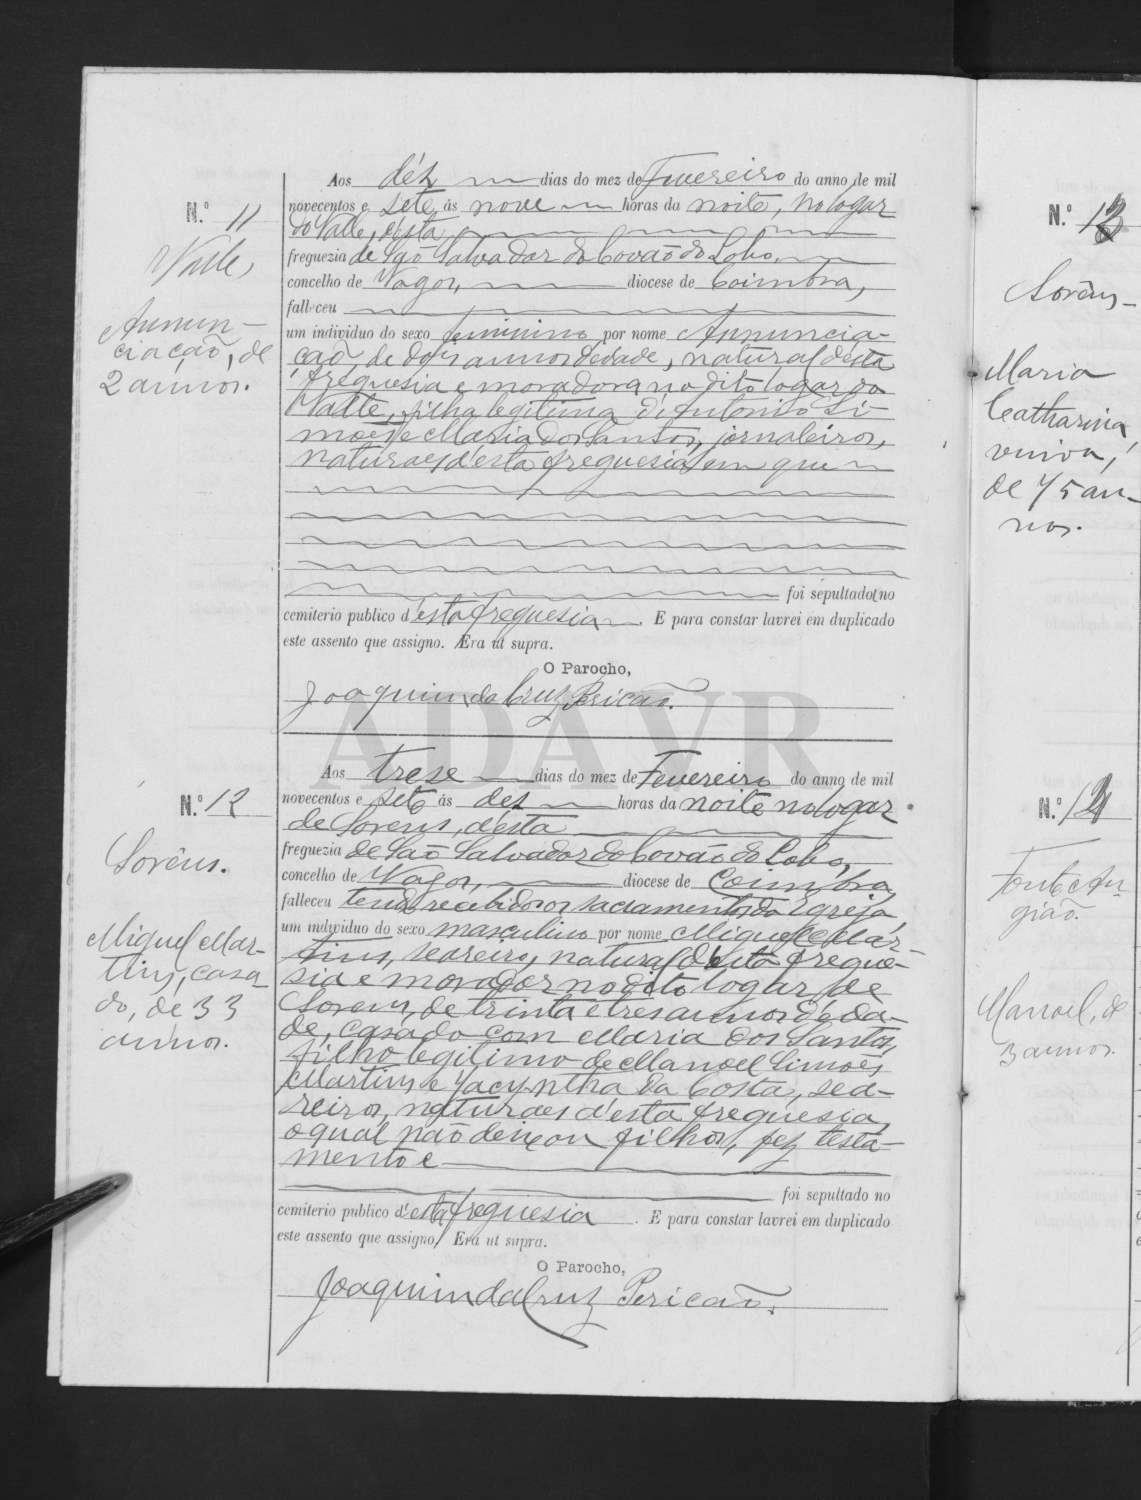 N.º 11
Valle,
Annun-
ciacaõ, de
2 annos.
Aos déz dias do mez de Fevereiro do anno de mil
novecentos e sete, ás nove horas da noite, no logar
do Valle, d'ésta
freguezia de Saõ Salvador do Covaõ do Lobo,
concelho de Vagos, diocese de Coimbra,
falleceu
um individuo do sexo feminino por nome Annuncia-
çaõ, de dois annos d'edade, natural d'esta
freguesia e moradora no dito logar do
Valle, filha legitima d'Antonio Si-
mões e Maria dos Santos, jornaleiros,
naturaes d'esta freguesia, em que
foi sepultado no
cemiterio publico d'esta freguesia. E para constar lavrei em duplicado
este assento que assigno. Era ut supra.
O Parocho,
Joaquim da Cruz Pericaõ.
ADAVR
N.º 12
Sorêns.
Miguel Mar-
tins, casa
do, de 33
annos.
Aos trese dias do mez de Fevereiro do anno de mil
novecentos e sete ás dez horas da noite no logar
de Sorens, d'ésta
freguezia de Saõ Salvador do Covaõ do Lobo,
concelho de Vagos, diocese de Coimbra,
falleceu tendo recebido os sacramentos da Egreja,
um individuo do sexo masculino por nome Miguel Mar-
tins, seareiro, natural d'esta fregue-
sia e morador no dito logar de
Sorens, de trinta e tres annos d'eda-
de, casado com Maria dos Santos,
filho legitimo de Manoel Simões
Martins e Jacyntha da Costa, sea-
reiros, naturaes d'esta freguesia,
o qual naõ deixou filhos, fez testa-
mento e
foi sepultado no
cemiterio publico d'esta freguesia. E para constar lavrei em duplicado
este assento que assigno. Era ut supra.
O Parocho,
Joaquim da Cruz Pericaõ.
N.º 13
Sorêns-
Maria
Catharina
viuva,
de 75 an-
nos.
N.º 14
Fonte An-
giaõ.
Manoel, de
3 annos.